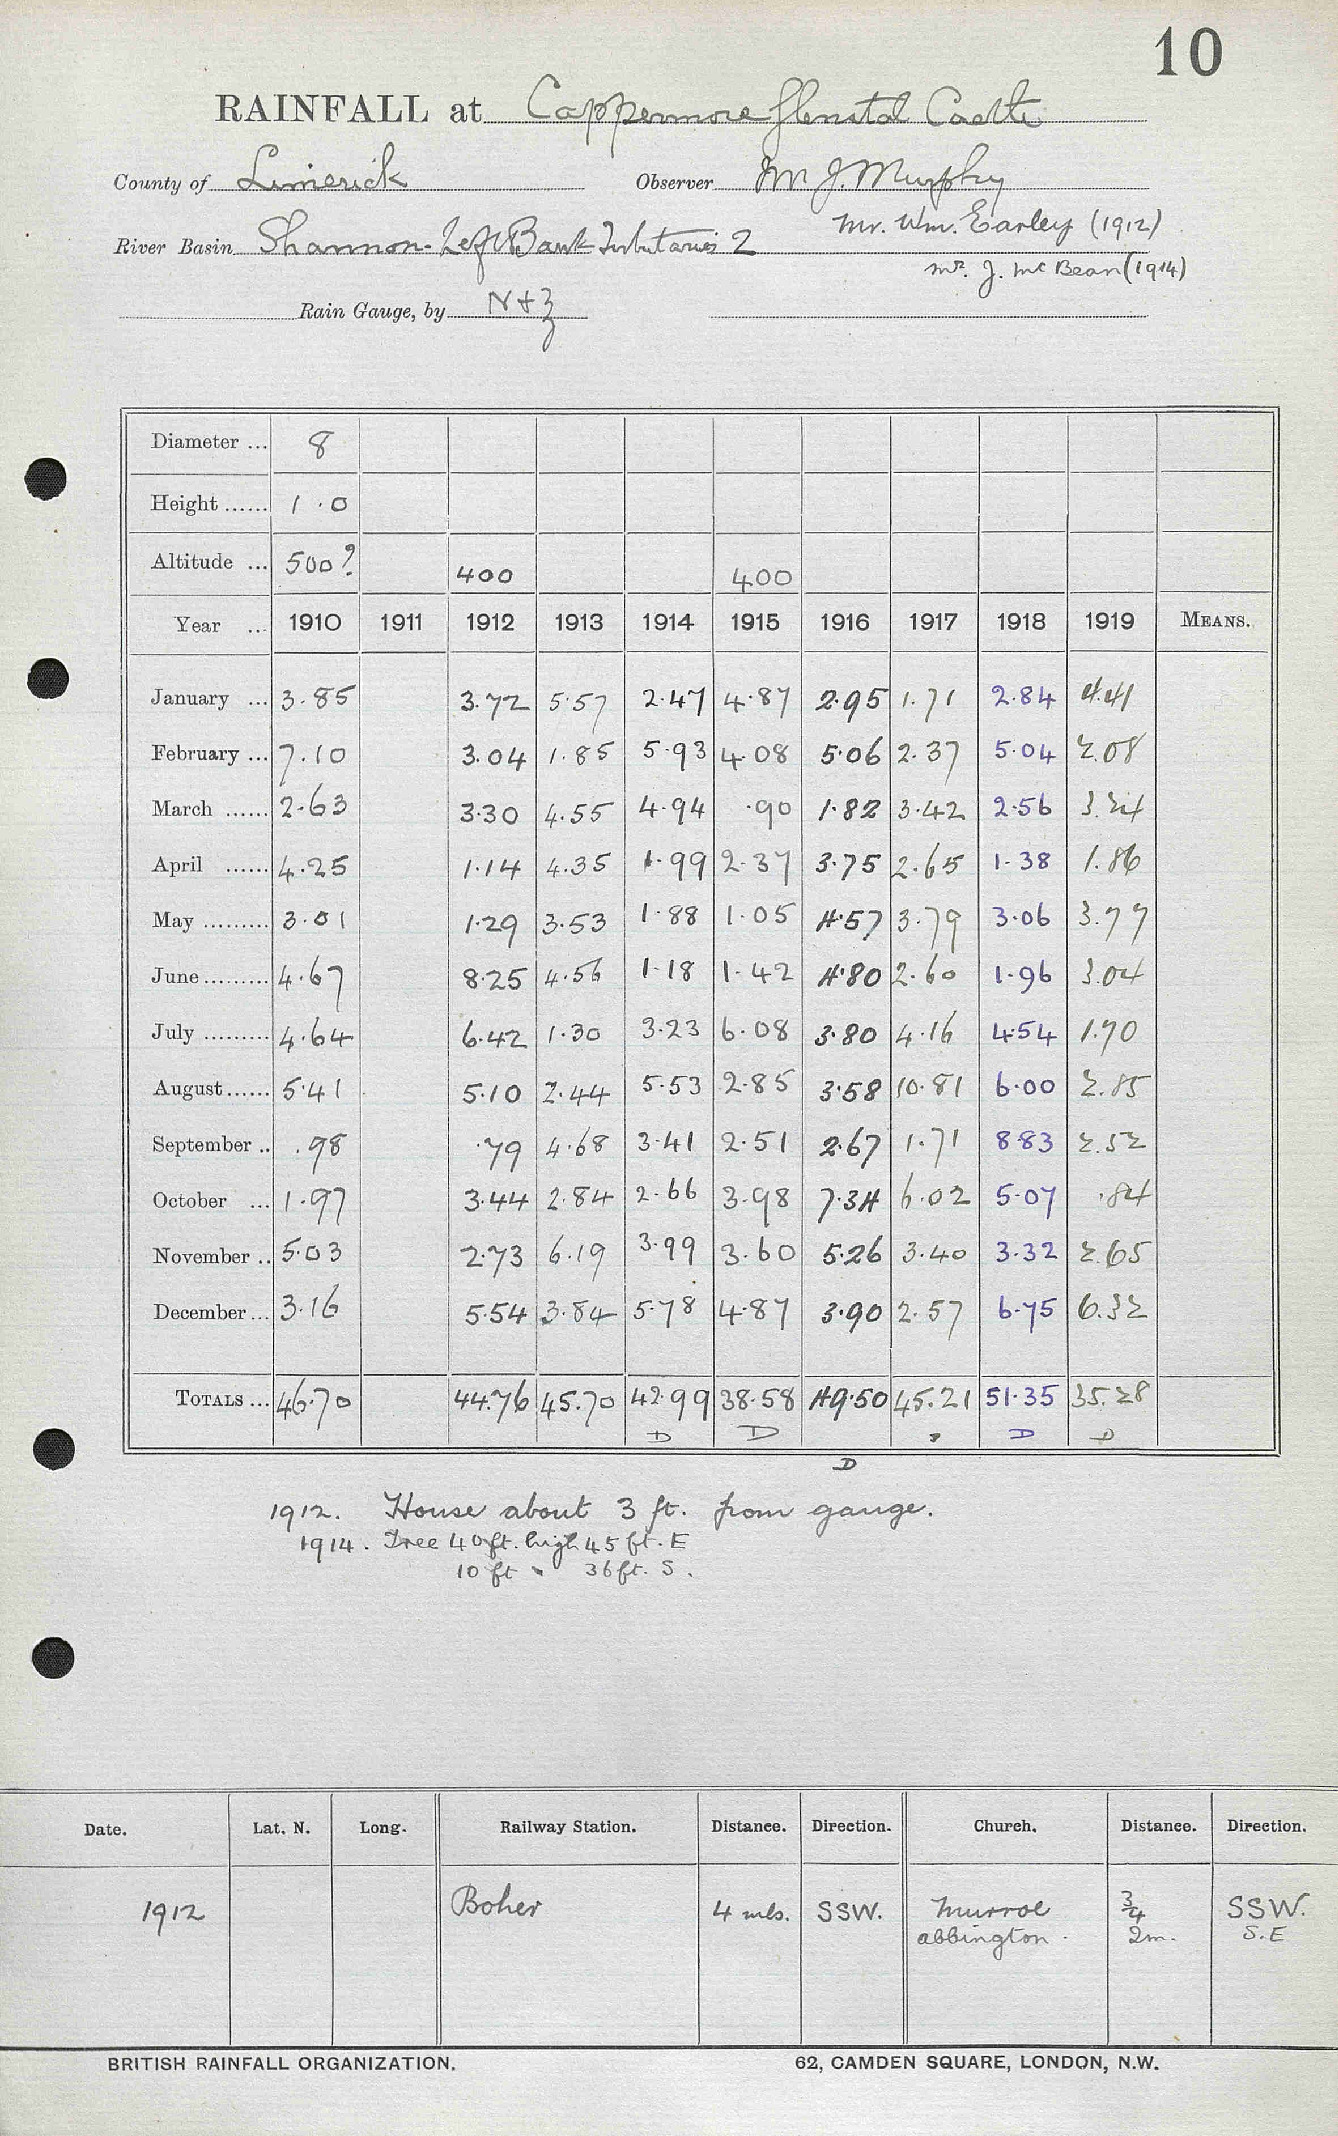 10
RAINFALL at Cappermore Glenstal Castle
County of Limerick Observer Mr J. Murphy
Mr. Wm. Earley (1912)
River Basin Shannon-Left Bank Tributaries 2
Mr. J. McBean (1914)
Rain Gauge, by N+Z
Diameter ... 8
Height ...... 1.0
Altitude ... 500? 400 400
Year ... 1910 1911 1912 1913 1914 1915 1916 1917 1918 1919 MEANS.
January ... 3.85 3.72 5.57 2.47 4.87 2.95 1.71 2.84 4.41
February ... 7.10 3.04 1.85 5.93 4.08 5.06 2.37 5.04 2.08
March ...... 2.63 3.30 4.55 4.94 .90 1.82 3.42 2.56 3.24
April ...... 4.25 1.14 4.35 1.99 2.37 3.75 2.65 1.38 1.86
May ......... 3.01 1.29 3.53 1.88 1.05 4.57 3.79 3.06 3.77
June ......... 4.67 8.25 4.56 1.18 1.42 4.80 2.60 1.96 3.04
July ......... 4.64 6.42 1.30 3.23 6.08 3.80 4.16 4.54 1.70
August ...... 5.41 5.10 2.44 5.53 2.85 3.58 10.81 6.00 2.85
September .. .98 .79 4.68 3.41 2.51 2.67 1.71 8.83 2.52
October ... 1.97 3.44 2.84 2.66 3.98 7.34 6.02 5.07 .84
November .. 5.03 2.73 6.19 3.99 3.60 5.26 3.40 3.32 2.65
December ... 3.16 5.54 3.84 5.78 4.87 3.90 2.57 6.75 6.32
TOTALS ... 46.70 44.76 45.70 42.99 38.58 49.50 45.21 51.35 35.28
D D D D
D
1912. House about 3 ft. from gauge.
1914. Tree 40ft. high 45 ft. E
10 ft " 36 ft. S.
Date. Lat. N. Long. Railway Station. Distance. Direction. Church. Distance. Direction.
1912 Boher 4 mls. SSW. Murroe 3/4 SSW.
abbington. 2m. S.E
BRITISH RAINFALL ORGANIZATION. 62, CAMDEN SQUARE, LONDON, N.W.